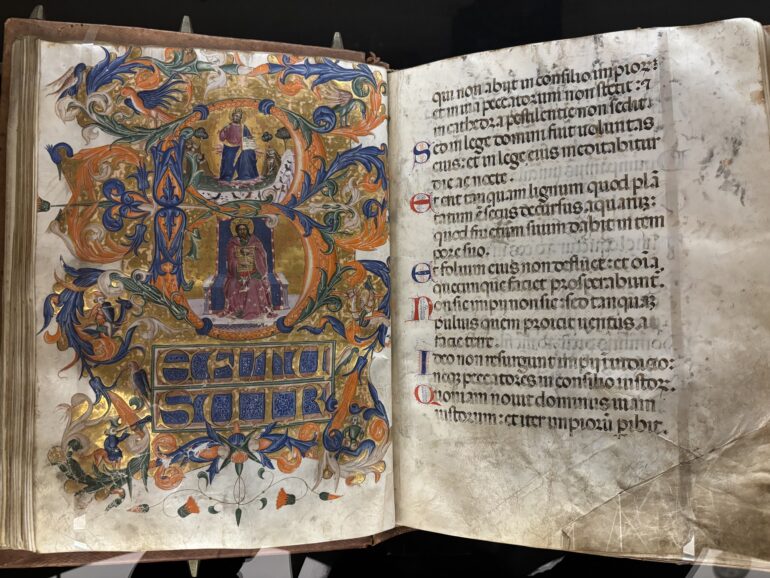 B
EATU
SUIR
qui non abijt in consilio impior:
et in uia peccatorum non stetit: et
in cathedra pestilentie non sedit
Sed in lege domini fuit uoluntas
eius: et in lege eius meditabitur
die ac nocte.
Et erit tanquam lignum quod plā
tatum ē secus decursus aquarum:
quod fructum suum dabit in tem
pore suo.
Et folium eius non defluet: et oīa
quecunque faciet prosperabunt.
Non sic impij non sic: sed tanquaʒ
puluis quem proicit uentus a
facie terre.
Ideo non resurgunt impij in iudicio:
neqʒ peccatores in consilio iustor.
Quoniam nouit dominus uiam
iustorum: et iter impiorū peribit.